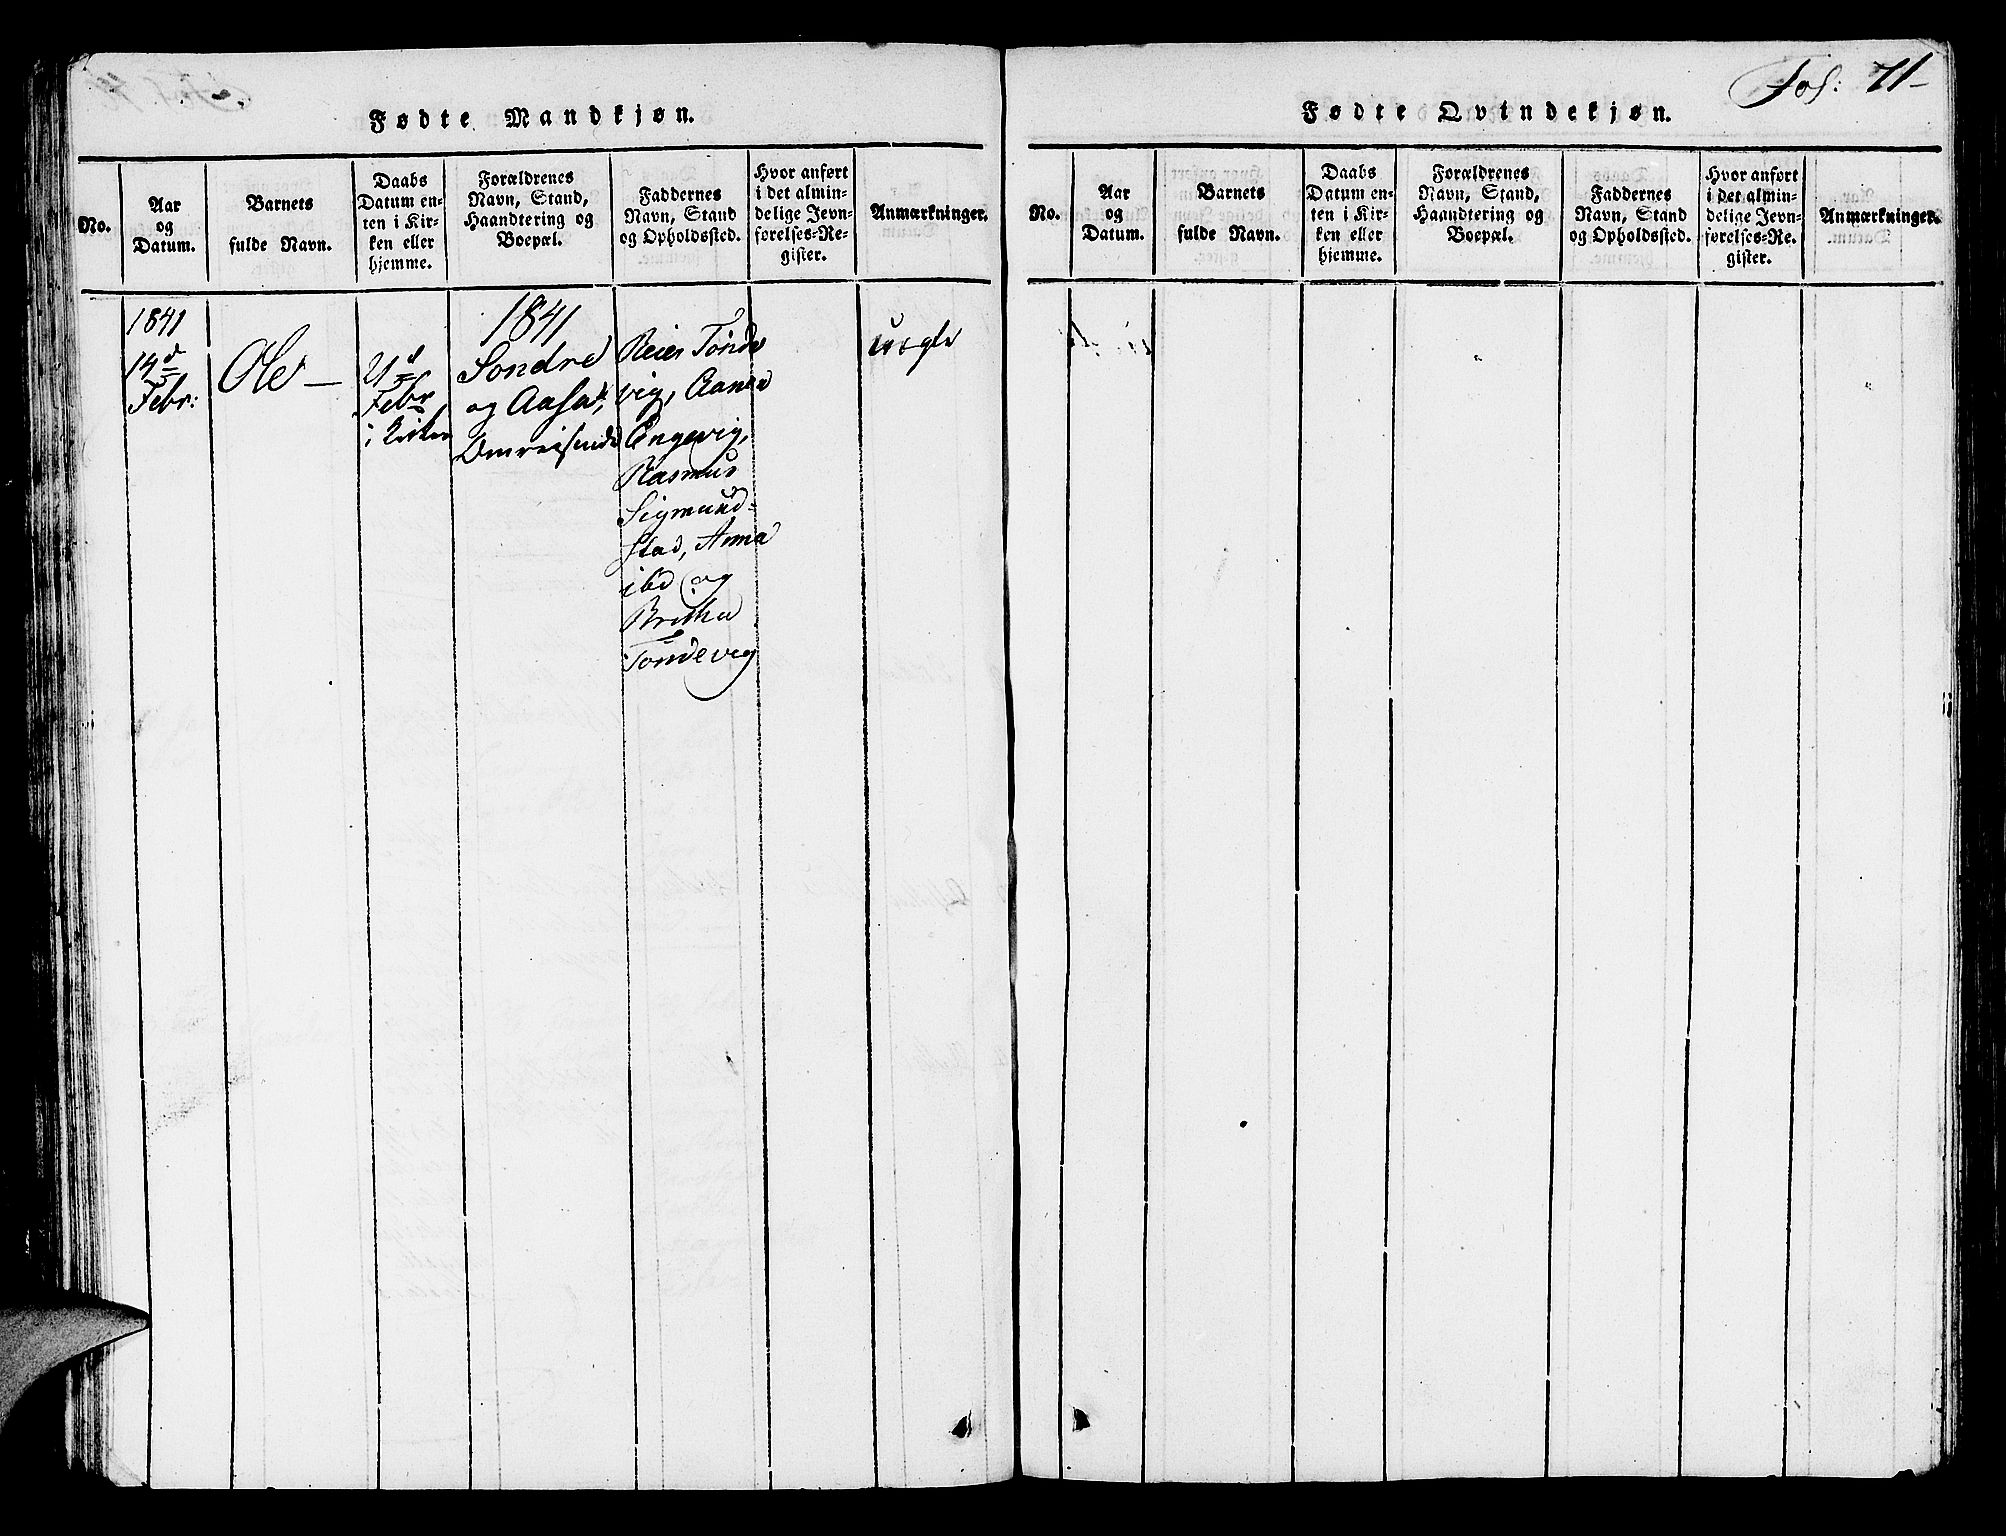 Fødte Mandkjøn.
No.
Aar
og
Datum.
Barnets
fulde Navn.
Daabs
Datum en-
ten i Kir-
ken eller
hjemme.
Forældrenes
Navn, Stand,
Haandtering og
Boepæl.
Faddernes
Navn, Stand
og Opholdssted.
Hvor anført
i det almin-
delige Jevn-
førelses-Re-
gister.
Anmærkninger.
1841
14d
Febr:
Ole —
21d
Febr
i Kirken
1841
Sondre
og Aasa,
Omreisende
Reier Tonde
vig, Aanen
Engevig,
Rasmus
Sigmund-
stad, Anna
ibd og
Britha
Tondevig
uægte
Fol: 71-
Fødte Qvindekjøn.
No.
Aar
og
Datum.
Barnets
fulde Navn.
Daabs
Datum en-
ten i Kir-
ken eller
hjemme.
Forældrenes
Navn, Stand,
Haandtering og
Boepæl.
Faddernes
Navn, Stand
og Opholdssted.
Hvor anført
i det almin-
delige Jevn-
førelses-Re-
gister.
Anmærkninger.